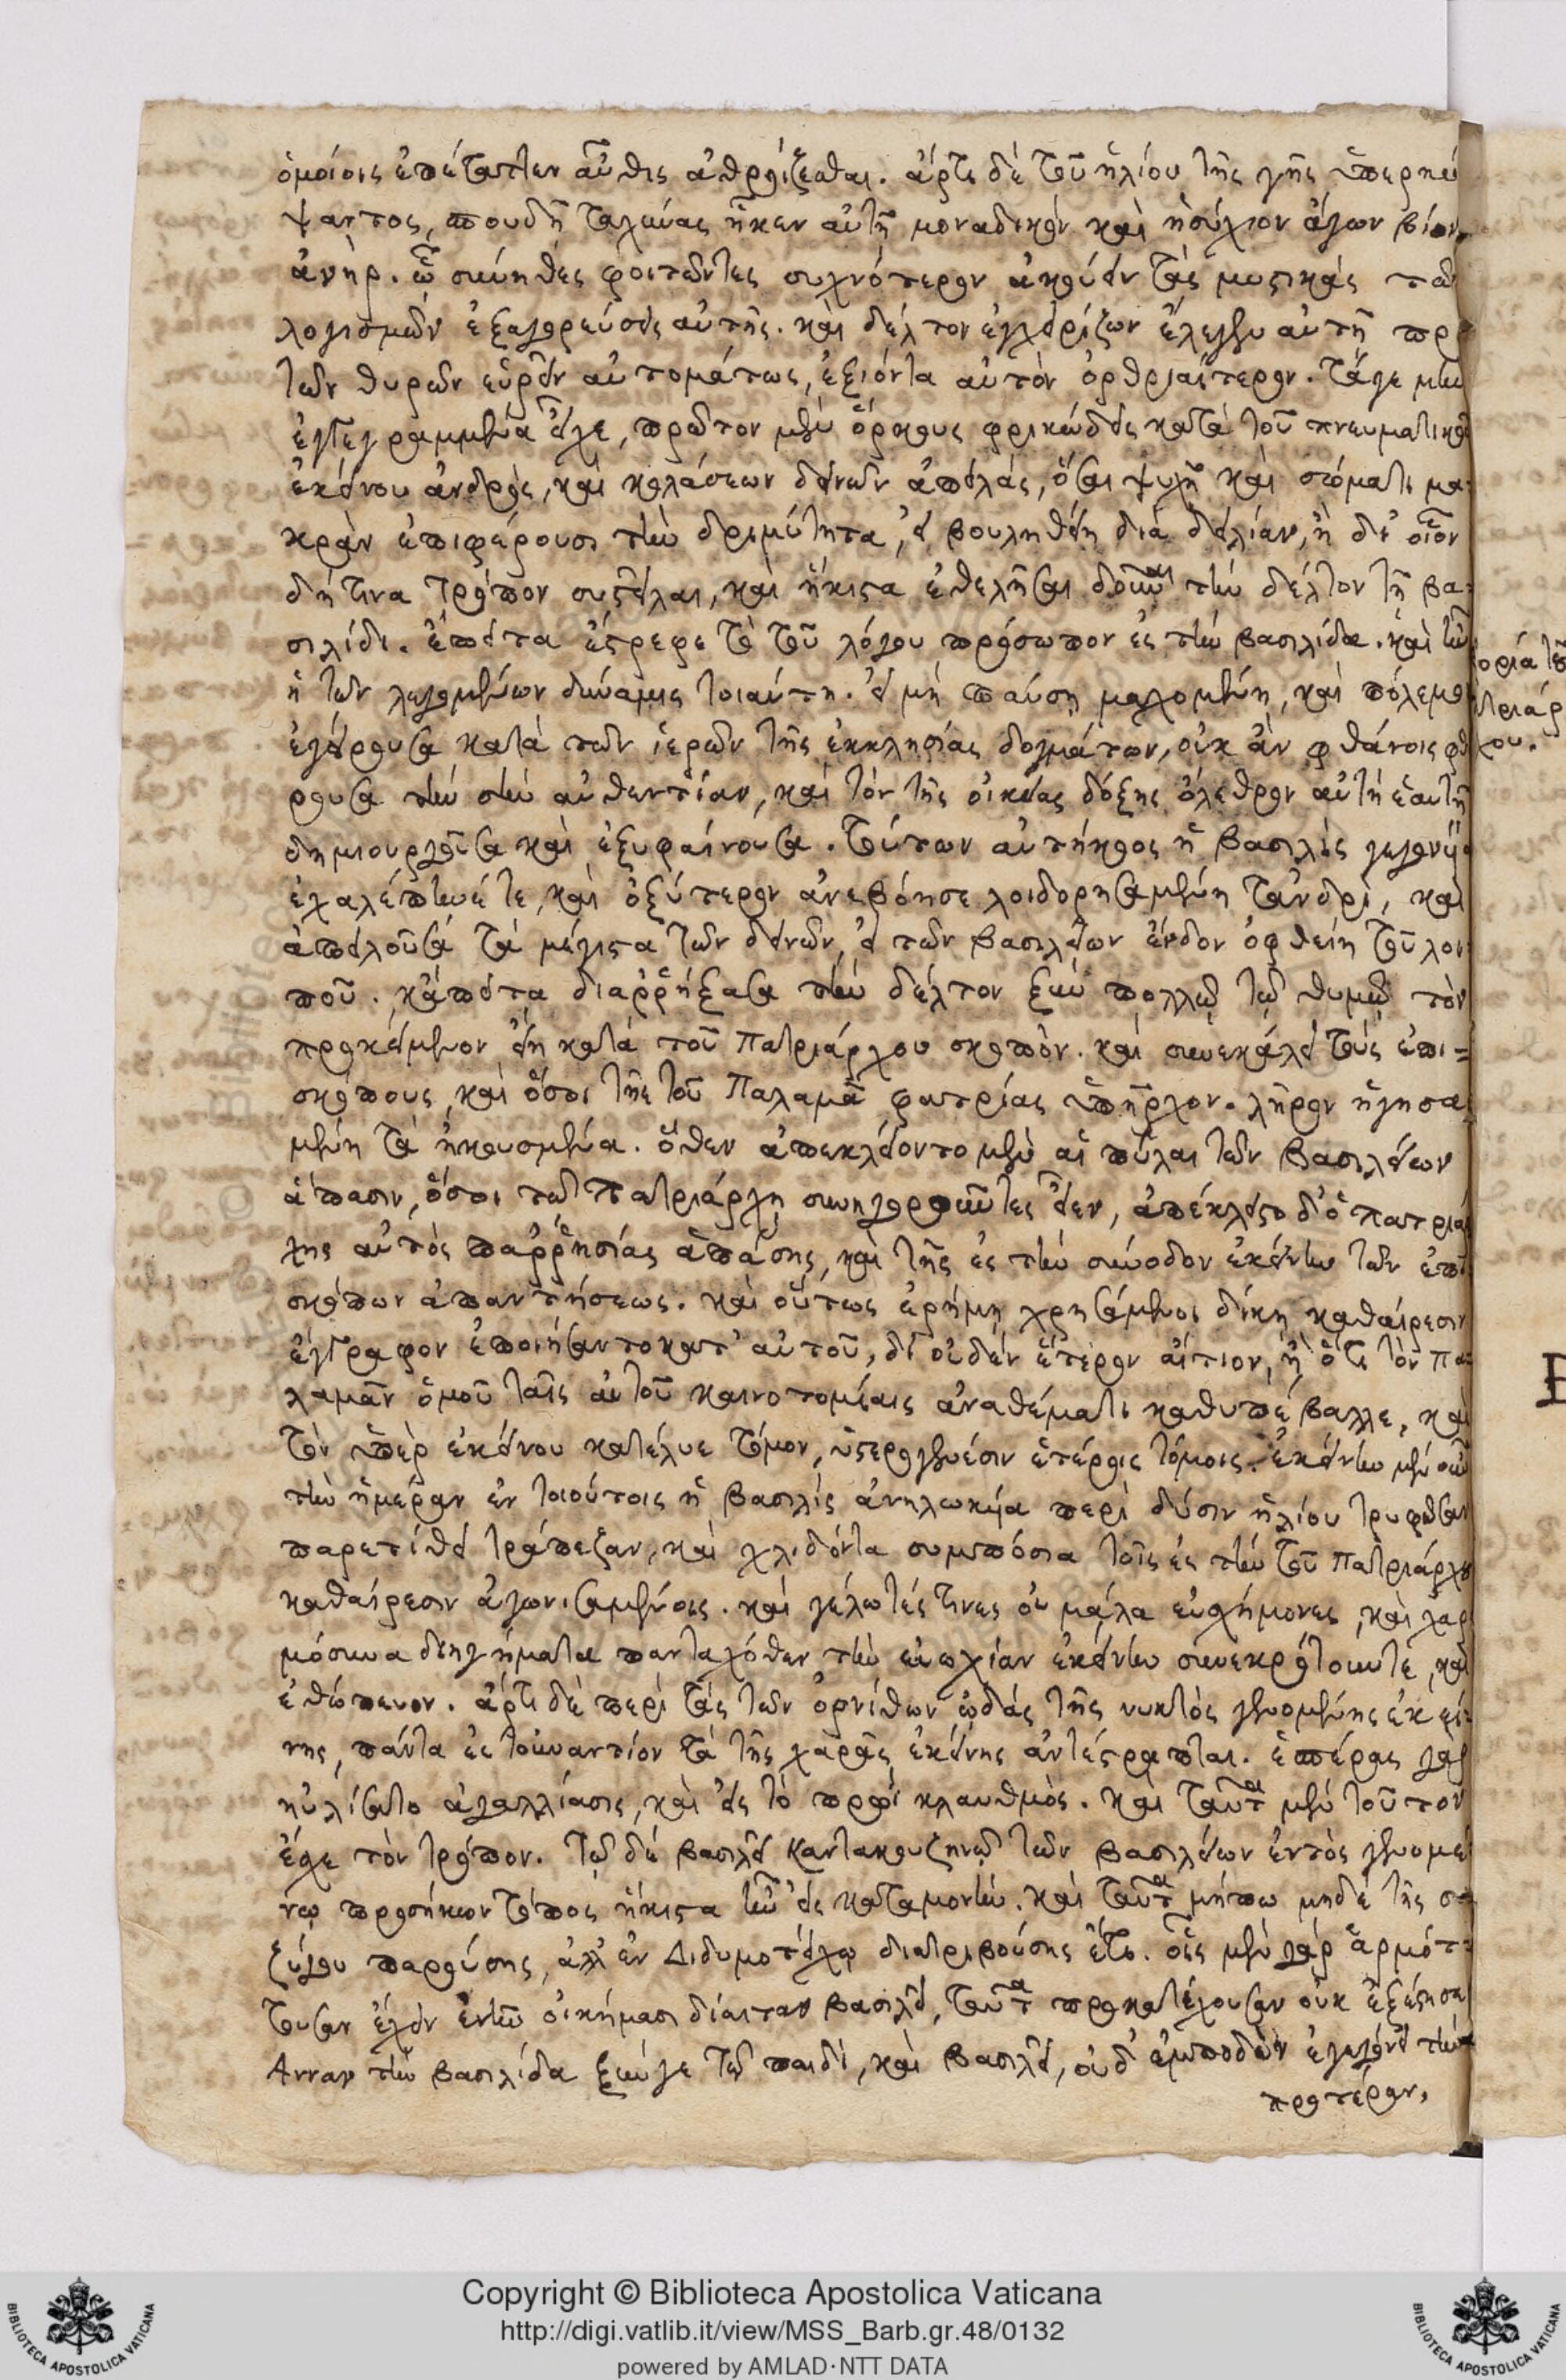 ὁμοίοις ἐπέταττεν αὖθις ἀθροίζεσθαι. ἄρτι δὲ τοῦ ἡλίου τῆς γῆς ὑπερκύ
ψαντος, σπουδῇ ταχείας ἧκεν αὐτῇ μοναδικὸν καὶ ἡσύχιον ἄγων βίον
ἀνήρ. ᾧ σύνηθες φοιτῶντες συχνότερον ἀκούειν τὰς μυστικὰς τῶν
λογισμῶν ἐξαγορεύσεις αὐτῆς. καὶ δέλτον ἐγχειρίζων ἔλεγεν αὐτῇ πρὸ
τῶν θυρῶν εὑρεῖν αὐτομάτως, ἐξιόντα αὐτὸν ὀρθριαίτερον. τά γε μὴν
ἐγγεγραμμένα εἶχε, πρῶτον μὲν ὅρκους φρικώδεις κατὰ τοῦ πνευματικοῦ
ἐκείνου ἀνδρὸς, καὶ κολάσεων δεινῶν ἀπειλὰς, ὅσαι ψυχῇ καὶ σώματι μα
κρὰν ἐπιφέρουσι τὴν δριμύτητα, εἰ βουληθείη διὰ δειλίαν, ἢ δι' οἷον
δήτινα τρόπον συστεῖλαι, καὶ ἥκιστα ἐθελῆσαι δοῦναι τὴν δέλτον τῇ βα
σιλίδι. ἔπειτα ἔστρεφε τὸ τοῦ λόγου πρόσωπον ἐς τὴν βασιλίδα. καὶ ἦν
ἡ τῶν λεγομένων δύναμις τοιαύτη. εἰ μὴ παύσῃ μαχομένη, καὶ πόλεμον
ἐγείρουσα κατὰ τῶν ἱερῶν τῆς ἐκκλησίας δογμάτων, οὐκ ἂν φθάνοις φθεί
ρουσα τὴν σὴν αὐθεντίαν, καὶ τὸν τῆς οἰκείας δόξης ὄλεθρον αὐτὴ ἑαυτῇ
δημιουργοῦσα καὶ ἐξυφαίνουσα. τούτων αὐτήκοος ἡ βασιλὶς γεγονυῖα
ἐχαλέπηνέ τε, καὶ ὀξύτερον ἀνεβόησε λοιδορησαμένη τἀνδρὶ, καὶ
ἀπειλοῦσα τὰ μέγιστα τῶν δεινῶν, εἰ τῶν βασιλείων ἔνδον ὀφθείη τοῦ λοι
ποῦ. κἄπειτα διαῤῥήξασα τὴν δέλτον ξὺν πολλῷ τῷ θυμῷ τὸν
προκείμενον ᾔει κατὰ τοῦ Πατριάρχου σκοπὸν. καὶ συνεκάλει τοὺς ἐπι=
σκόπους, καὶ ὅσοι τῆς τοῦ Παλαμᾶ φατρίας ὑπῆρχον. λῆρον ἡγησα
μένη τὰ ἠκουσμένα. ὅθεν ἀπεκλείοντο μὲν αἱ πύλαι τῶν βασιλείων
ἅπασιν, ὅσοι τῷ Πατριάρχῃ συνηγοροῦντες ᾖεν, ἀπέκλειστο δ' ὁ πατριάρ
χης αὐτὸς παῤῥησίας ἁπάσης, καὶ τῆς ἐς τὴν σύνοδον ἐκείνην τῶν ἐπι
σκόπων ἀπαντήσεως. καὶ οὕτως ἐρήμῃ χρησάμενοι δίκῃ καθαίρεσιν
ἔγγραφον ἐποιήσαντο κατ' αὐτοῦ, δι' οὐδὲν ἕτερον αἴτιον, ἢ ὅτι τὸν Πα
λαμᾶν ὁμοῦ ταῖς αὐτοῦ καινοτομίαις ἀναθέματι καθυπέβαλλε, καὶ
τὸν ὑπὲρ ἐκείνου κατέλυε τόμον, ὑστερογενέσιν ἑτέροις τόμοις. ἐκείνην μὲν οὖν
τὴν ἡμέραν ἐν τοιούτοις ἡ βασιλὶς ἀνηλωκυῖα περὶ δύσιν ἡλίου τρυφῶσαν
παρετίθει τράπεζαν, καὶ χλιδόντα συμπόσια τοῖς ἐς τὴν τοῦ Πατριάρχου
καθαίρεσιν ἀγωνισαμένοις. καὶ γέλωτές τινες οὐ μάλα εὐσχήμονες, καὶ χαρ
μόσυνα διηγήματα πανταχόθεν τὴν εὐωχίαν ἐκείνην συνεκρότουν τε, καὶ
ἐθώπευον. ἄρτι δὲ περὶ τὰς τῶν ὀρνίθων ᾠδὰς τῆς νυκτὸς γενομένης ἐκεί
νης, πάντα ἐς τοὐναντίον τὰ τῆς χαρᾶς ἐκείνης ἀντέστραπται. ἑσπέρας γὰρ
ηὐλίσατο ἀγαλλίασις, καὶ εἰς τὸ πρωῒ κλαυθμὸς. καὶ ταῦτα μὲν τοῦτον
ἔσχε τὸν τρόπον. τῷ δὲ βασιλεῖ Καντακουζηνῷ τῶν βασιλείων ἐντὸς γενομέ
νῳ προσήκων τόπος ἥκιστα ἦν εἰς καταμονήν. καὶ ταῦτα μήπω μηδὲ τῆς συ
ζύγου παρούσης, ἀλλ' ἐν Διδυμοτείχῳ διατριβούσης ἔτι. οἷς μὲν γὰρ ἁρμότ
τουσαν ἔχειν ἐνῆν οἰκήμασι δίαιταν βασιλεῖ, ταῦτα προκατέχουσαν οὐκ ἐξέστησαν
Ἄνναν τὴν βασιλίδα ξύν γε τῷ παιδὶ, καὶ βασιλεῖ, οὐδ' ἐμποδὼν ἐγεγόνει τὴν
προτέραν,
Copyright © Biblioteca Apostolica Vaticana
http://digi.vatlib.it/view/MSS_Barb.gr.48/0132
powered by AMLAD·NTT DATA
BIBLIOTECA APOSTOLICA VATICANA
BIBLIOTECA APOSTOLICA VATICANA